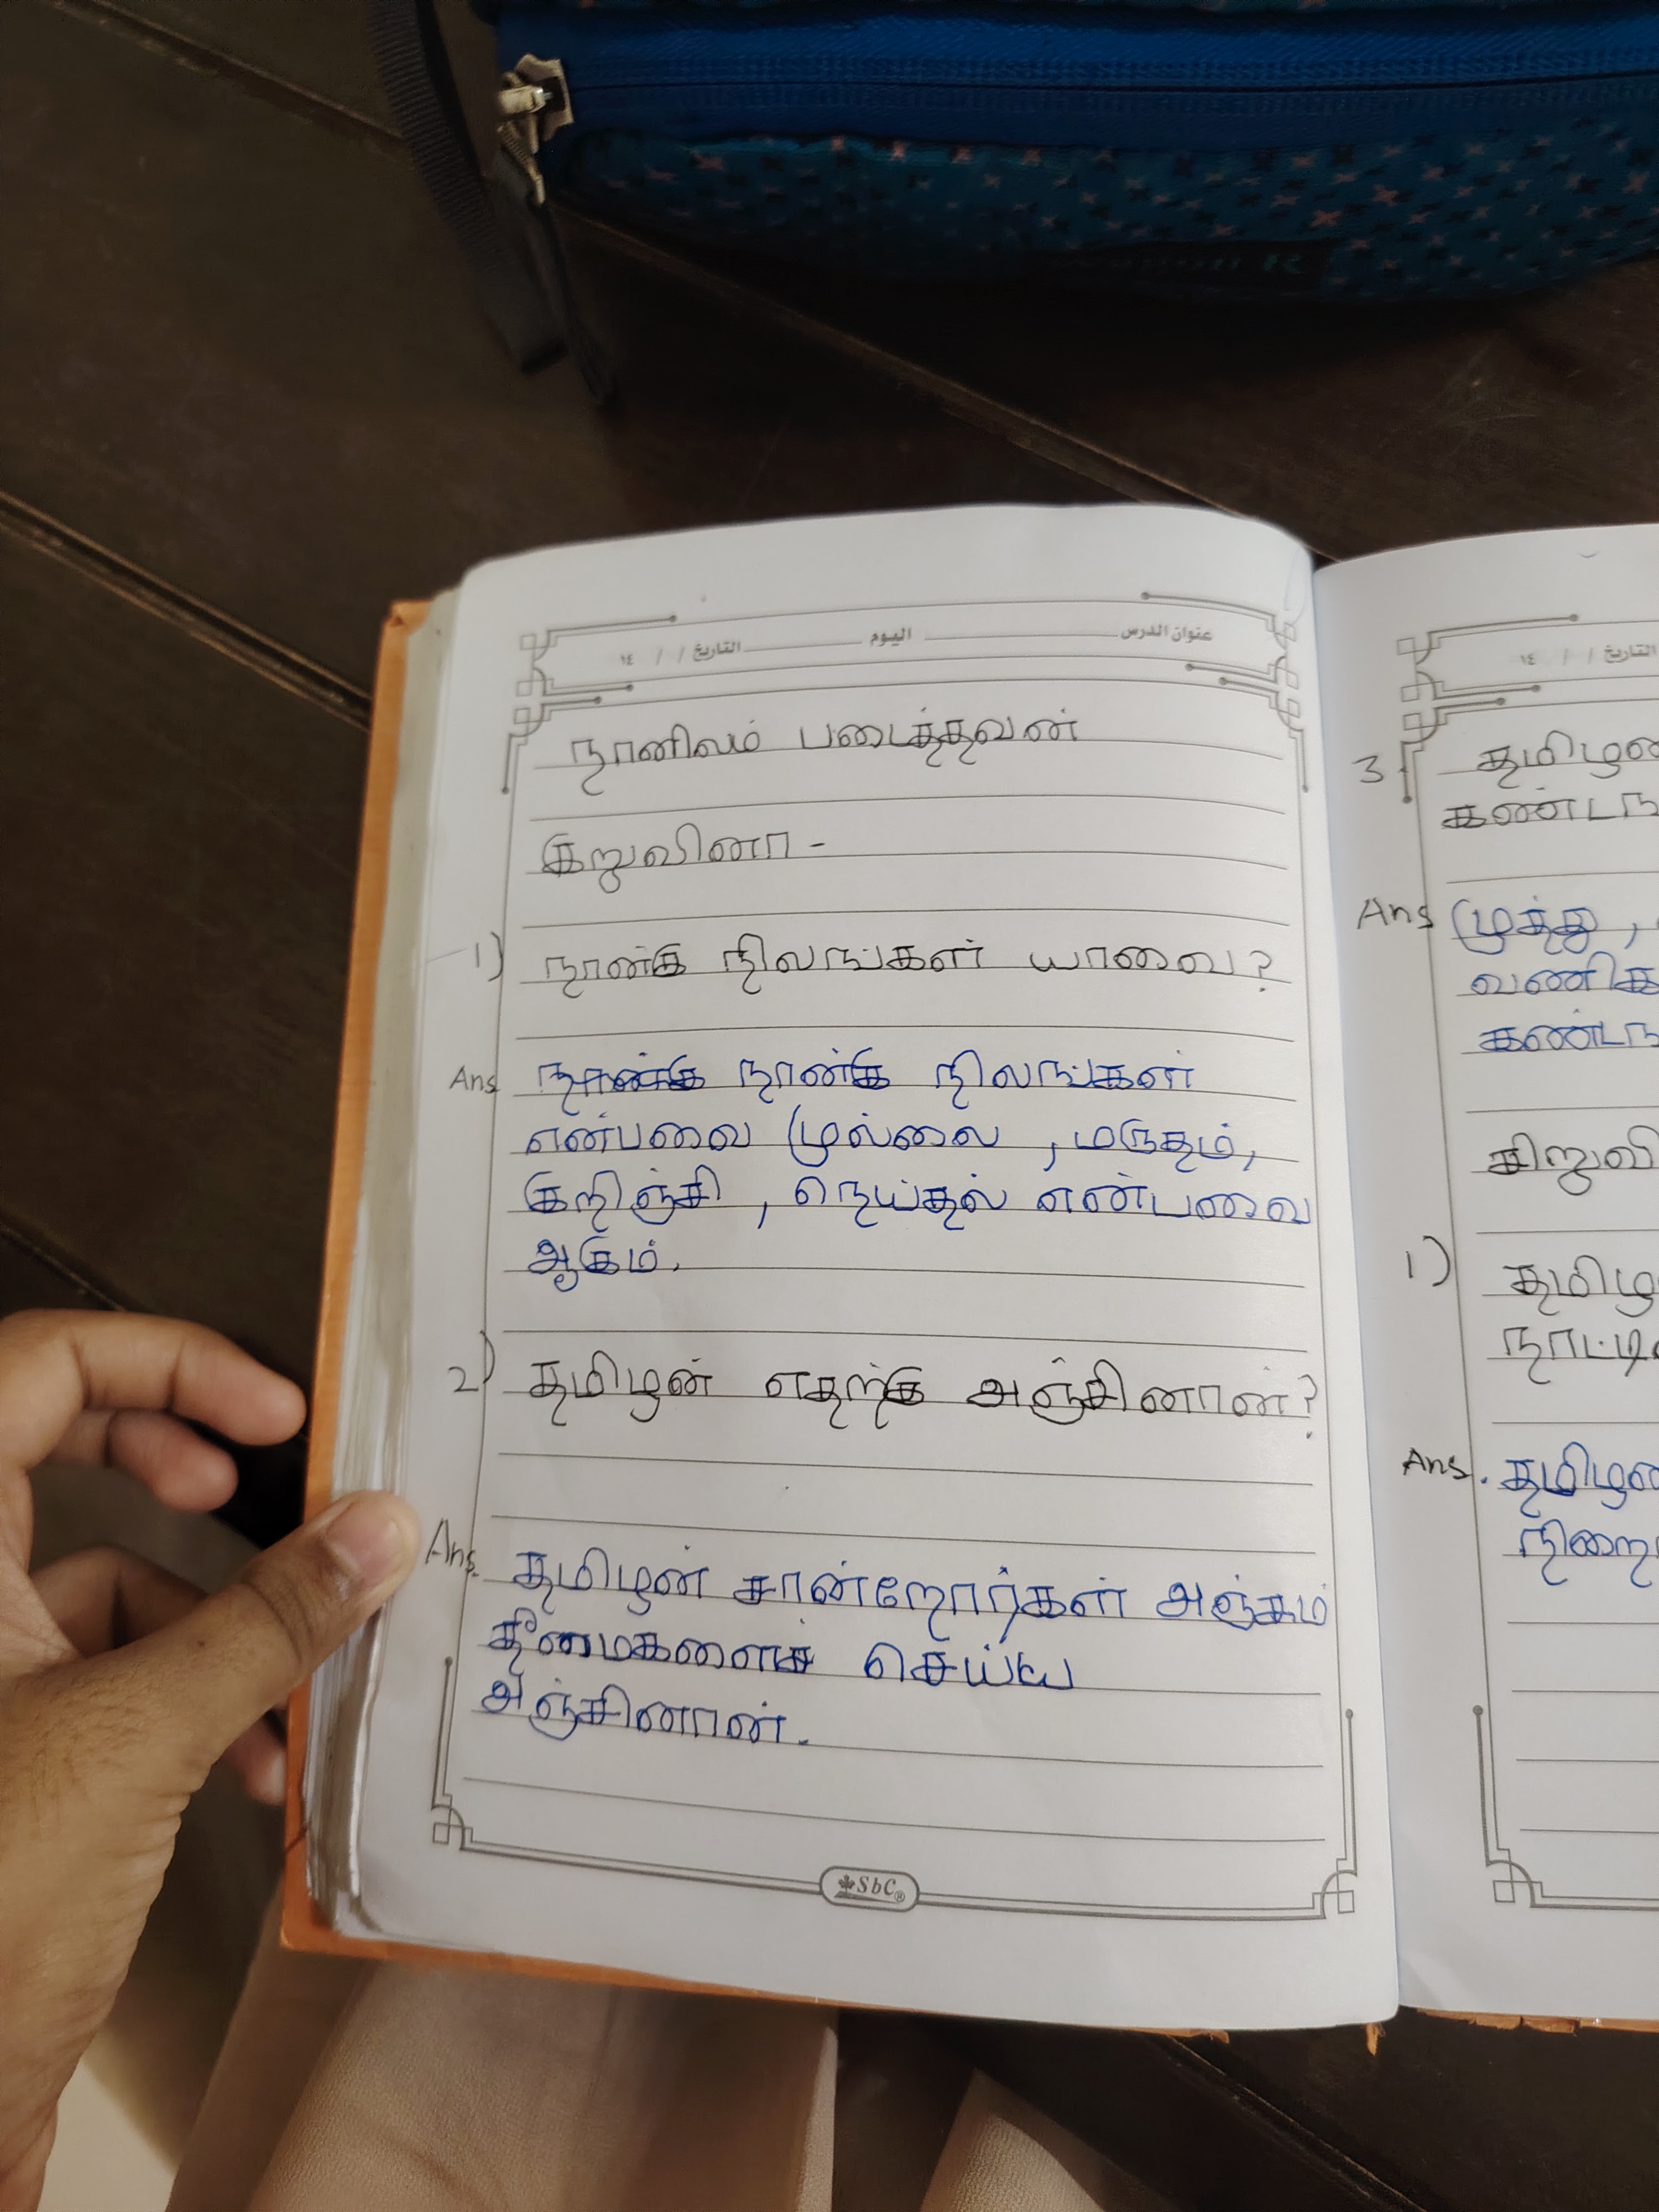 عنوان الدرس اليوم التاريخ / / ١٤
நானிலம் படைத்தவன்
குறுவினா -
1) நான்கு நிலங்கள் யாவை?
Ans நான்கு நான்கு நிலங்கள்
என்பவை முல்லை , மருதம்,
குறிஞ்சி , நெய்தல் என்பவை
ஆகும்.
2) தமிழன் எதற்கு அஞ்சினான்?
Ans. தமிழன் சான்றோர்கள் அஞ்சும்
தீமைகளைச் செய்ய
அஞ்சினான்.
SbC®
التاريخ / / ١٤
3.
Ans முத்து ,
1)
Ans.